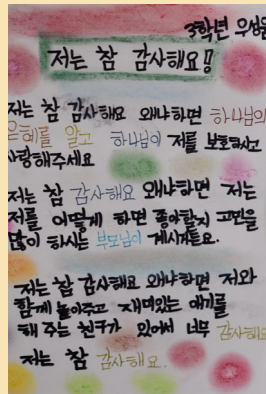 3학년 우성윤
저는 참 감사해요!!
저는 참 감사해요 왜냐하면 하나님의
은혜를 알고 하나님이 저를 보호하시고
사랑해주세요
저는 참 감사해요 왜냐하면 저는
저를 어떻게 하면 좋아할지 고민을
많이 하시는 부모님이 계시거든요.
저는 참 감사해요 왜냐하면 저와
함께 놀아주고 재미있는 얘기를
해 주는 친구가 있어서 너무 감사해요
저는 참 감사해요.